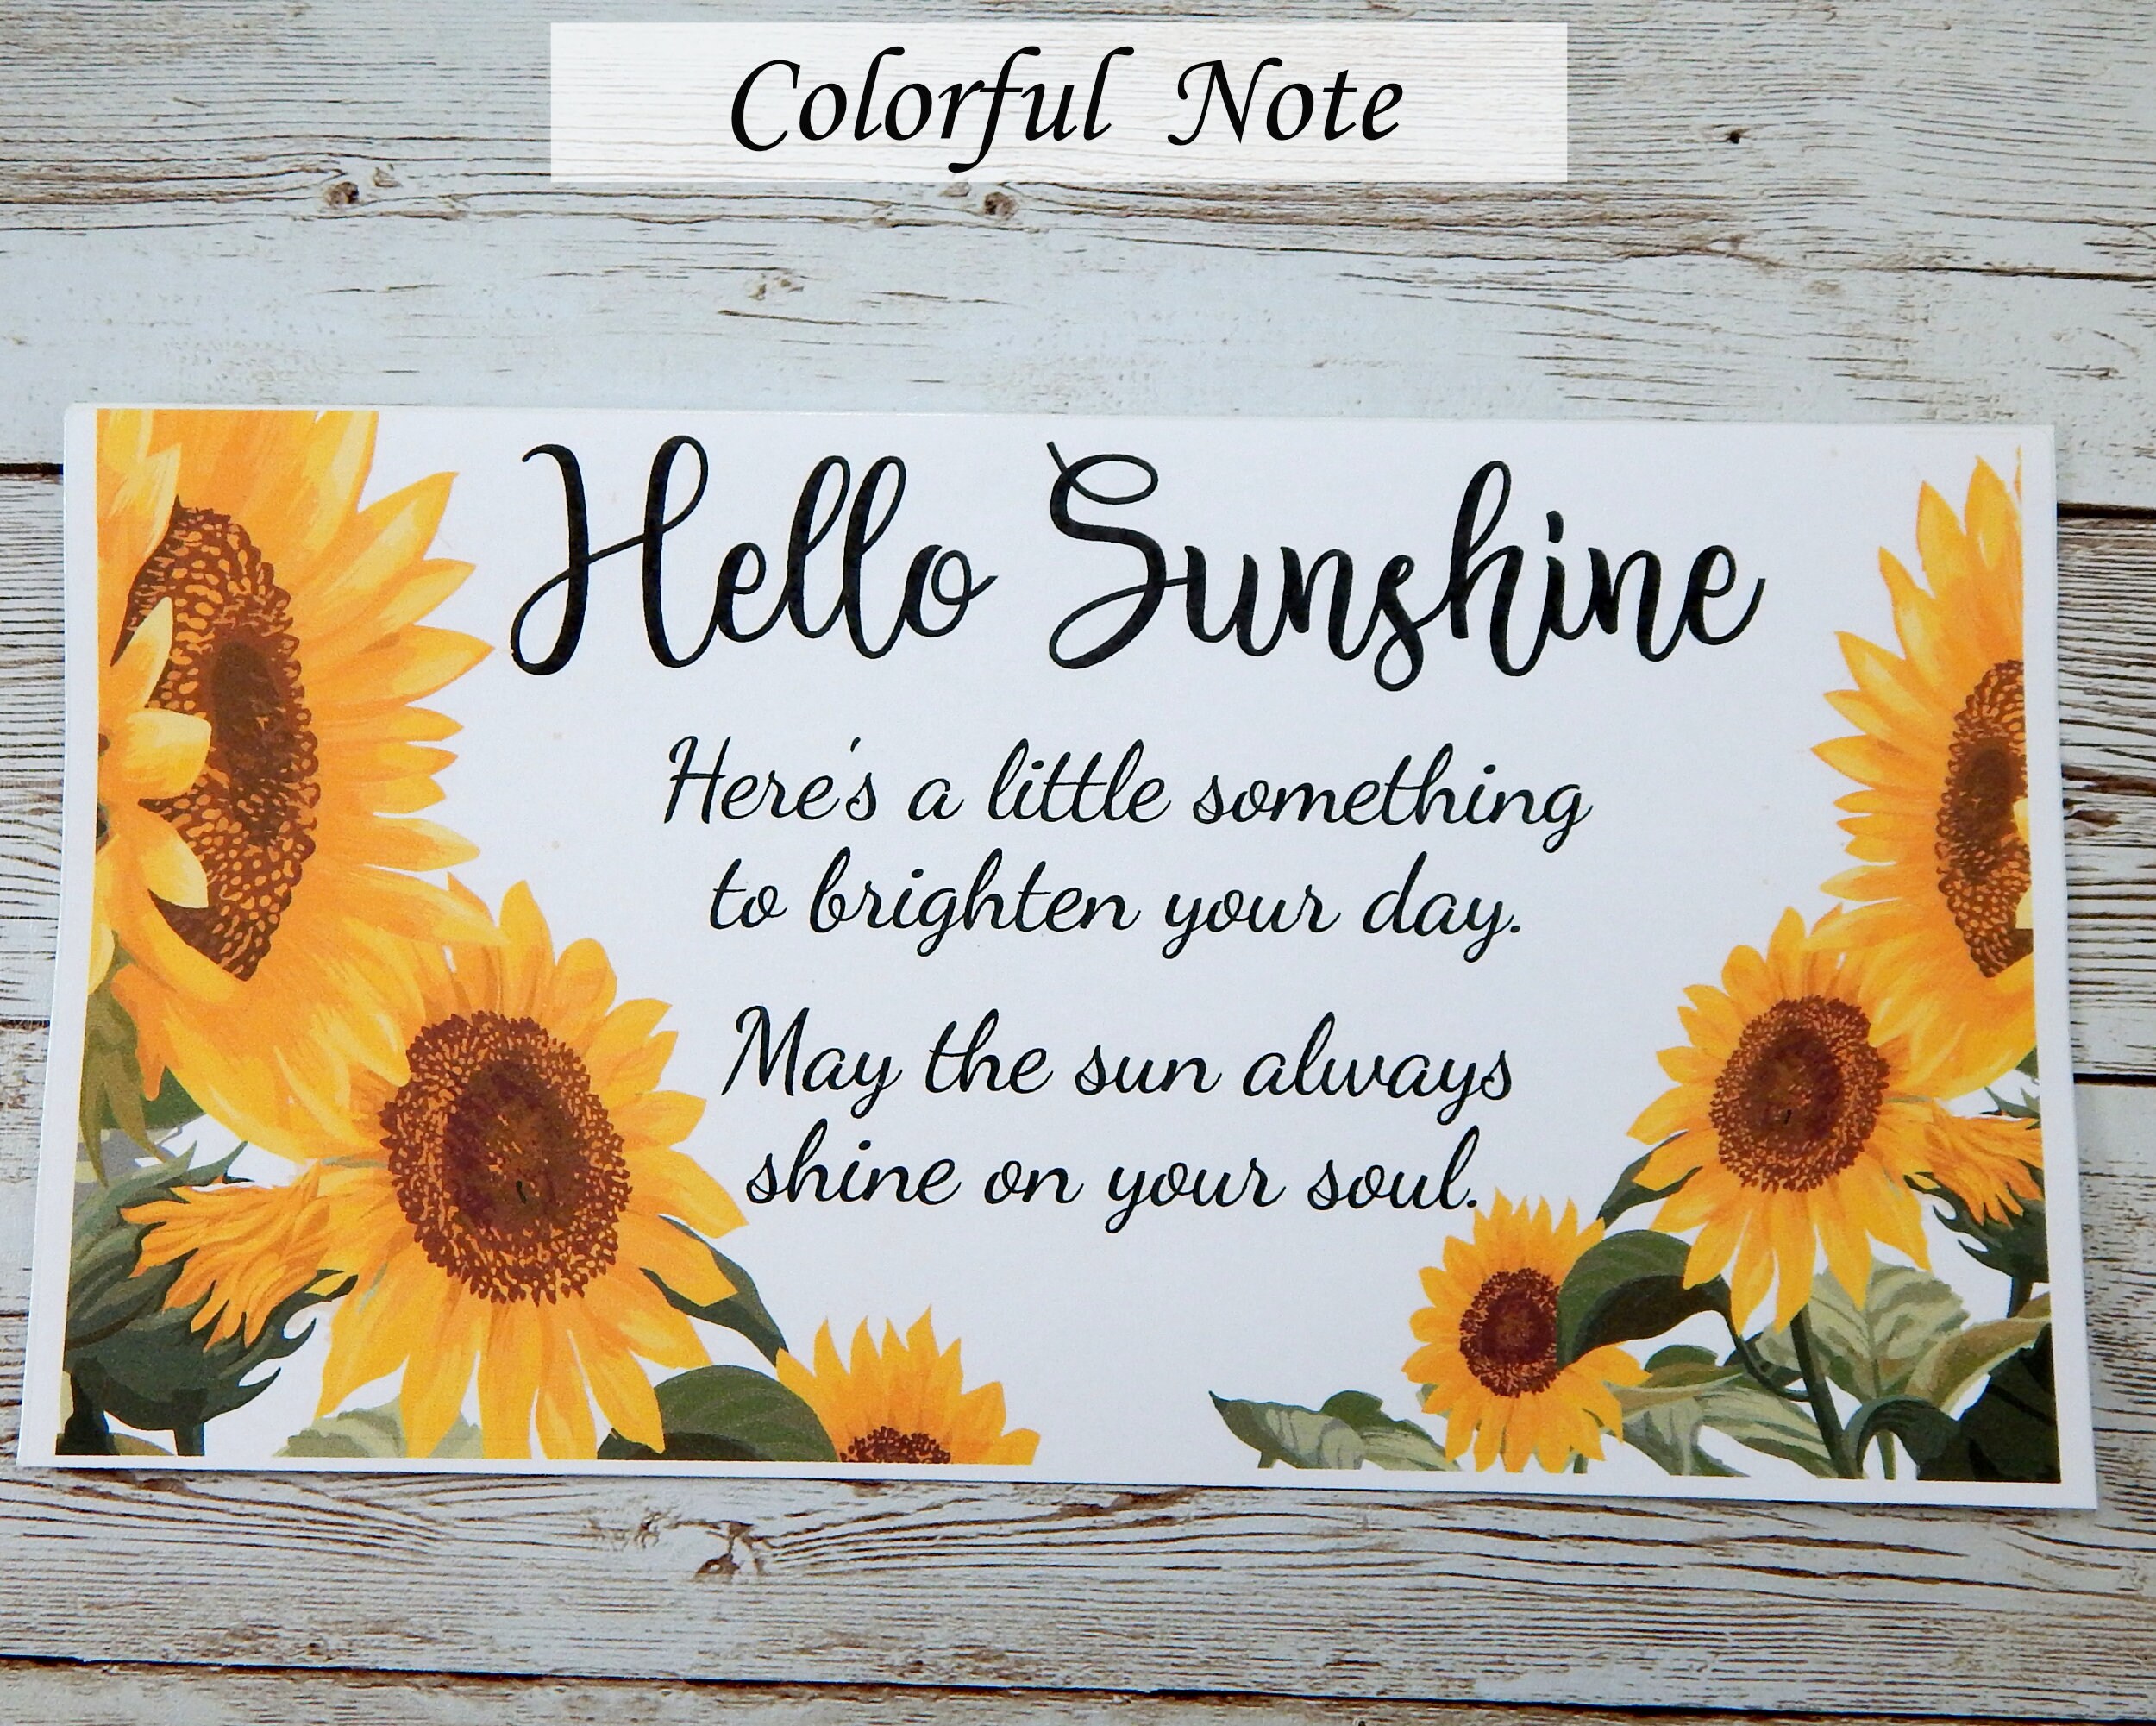 Colorful Note
Hello Sunshine
Here's a little something
to brighten your day.
May the sun always
shine on your soul.